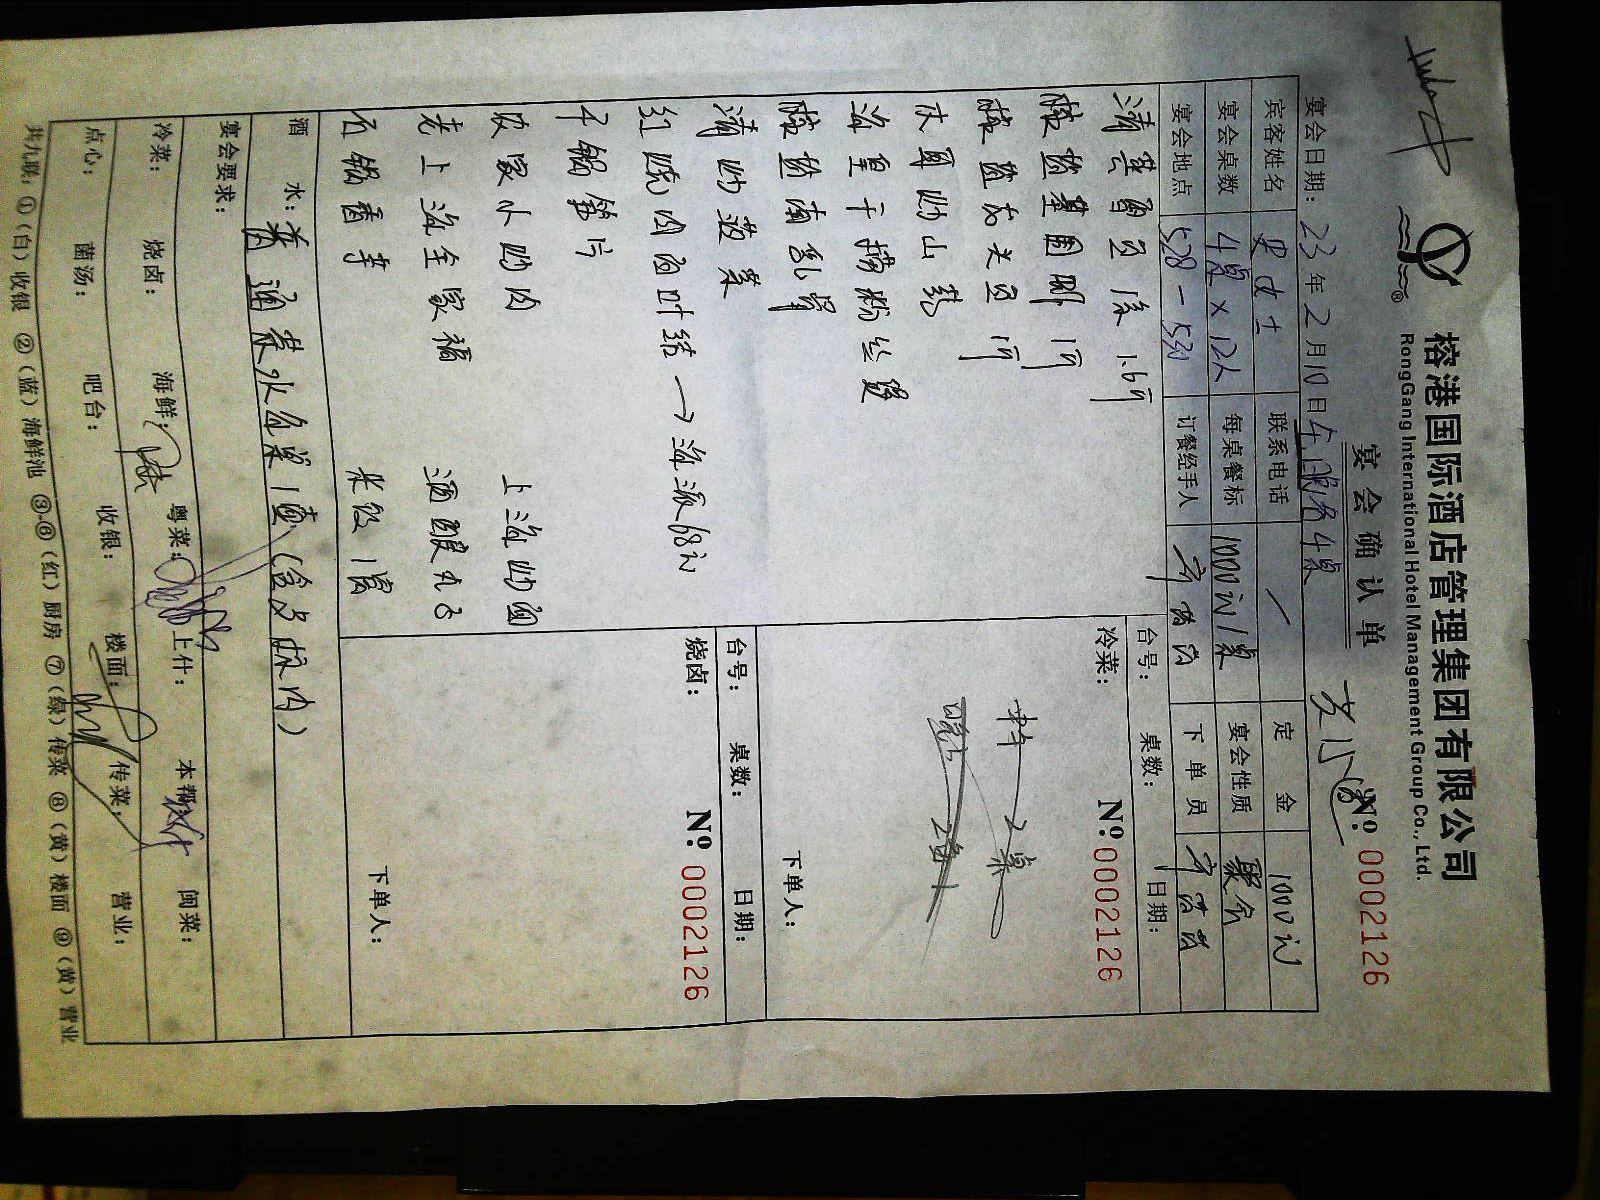 榕港国际酒店管理集团有限公司
RongGang International Hotel Management Group Co., Ltd.
宴会确认单
Nº: 0002126
宴会日期: 23年2月10日
宾客姓名 史女士 联系电话 / 定金 1000元
宴会桌数 4桌×12人 每桌餐标 1000元/桌 宴会性质 聚会
宴会地点 528-530 订餐经手人 下单员
清蒸 1.6斤
椒盐基围虾 1斤
1斤
木耳炒山药
海皇干捞粉丝煲
椒盐
清炒菠菜
红烧肉百叶结 → 海派68元
干锅笋片
农家小炒肉 上海炒面
老上海全家福 酒酿丸子
石锅香芋 米饭1窝
酒水: 普通茶水 (含桌标内)
宴会要求:
冷菜: 烧卤: 海鲜: 粤菜: 上什: 本帮: 闽菜:
点心: 菌汤: 吧台: 收银: 楼面: 传菜: 营业:
共九联: ①(白)收银 ②(蓝)海鲜池 ③-⑥(红)厨房 ⑦(绿)传菜 ⑧(黄)楼面 ⑨(黄)营业
台号: 桌数: 日期:
冷菜: Nº: 0002126
2桌
下单人:
台号: 桌数: 日期:
烧卤: Nº: 0002126
下单人: